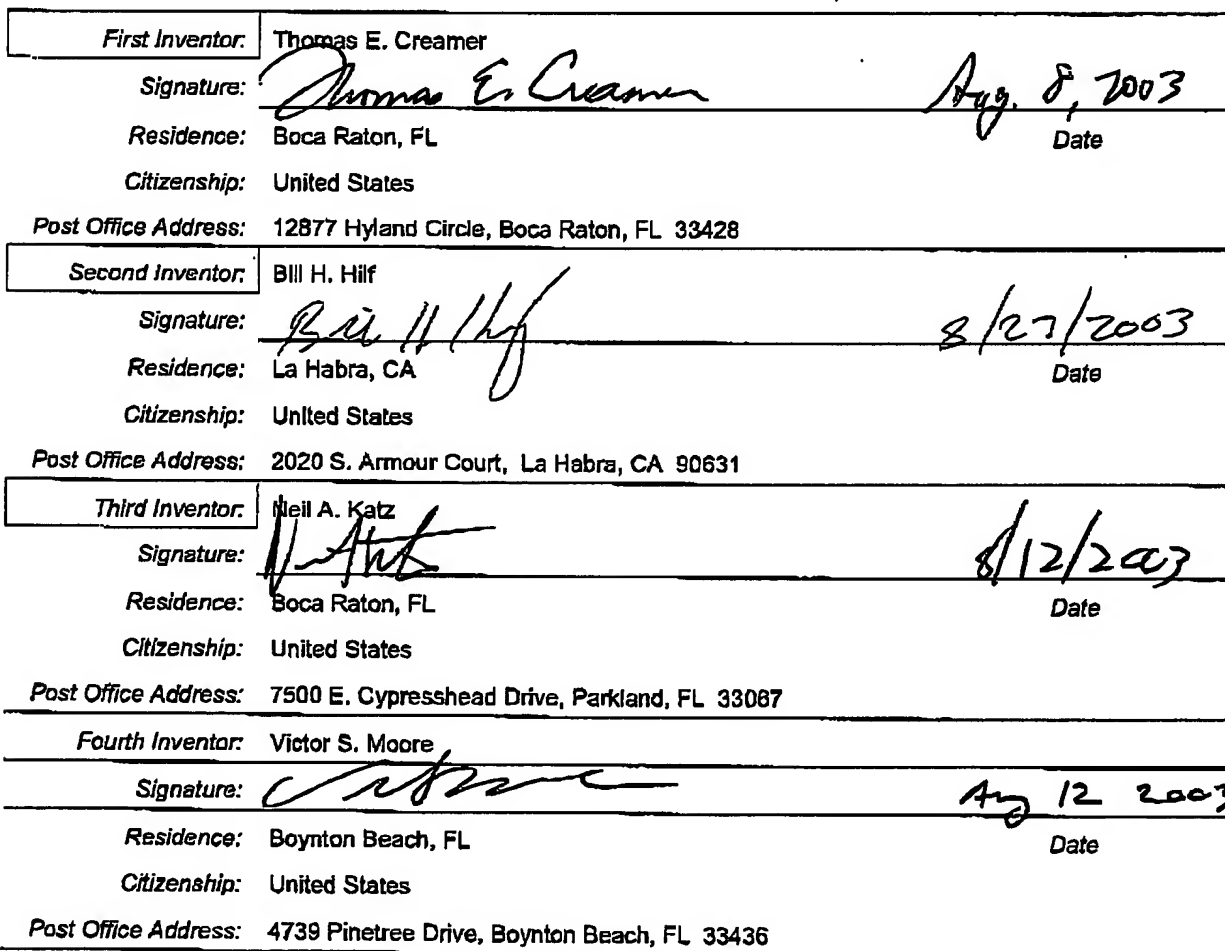 First Inventor: Thomas E. Creamer
Signature: Thomas E. Creamer Aug. 8, 2003
Residence: Boca Raton, FL Date
Citizenship: United States
Post Office Address: 12877 Hyland Circle, Boca Raton, FL 33428
Second Inventor: Bill H. Hilf
Signature: Bill H Hilf 8/27/2003
Residence: La Habra, CA Date
Citizenship: United States
Post Office Address: 2020 S. Armour Court, La Habra, CA 90631
Third Inventor: Neil A. Katz
Signature: 8/12/2003
Residence: Boca Raton, FL Date
Citizenship: United States
Post Office Address: 7500 E. Cypresshead Drive, Parkland, FL 33067
Fourth Inventor: Victor S. Moore
Signature: Aug 12 2003
Residence: Boynton Beach, FL Date
Citizenship: United States
Post Office Address: 4739 Pinetree Drive, Boynton Beach, FL 33436